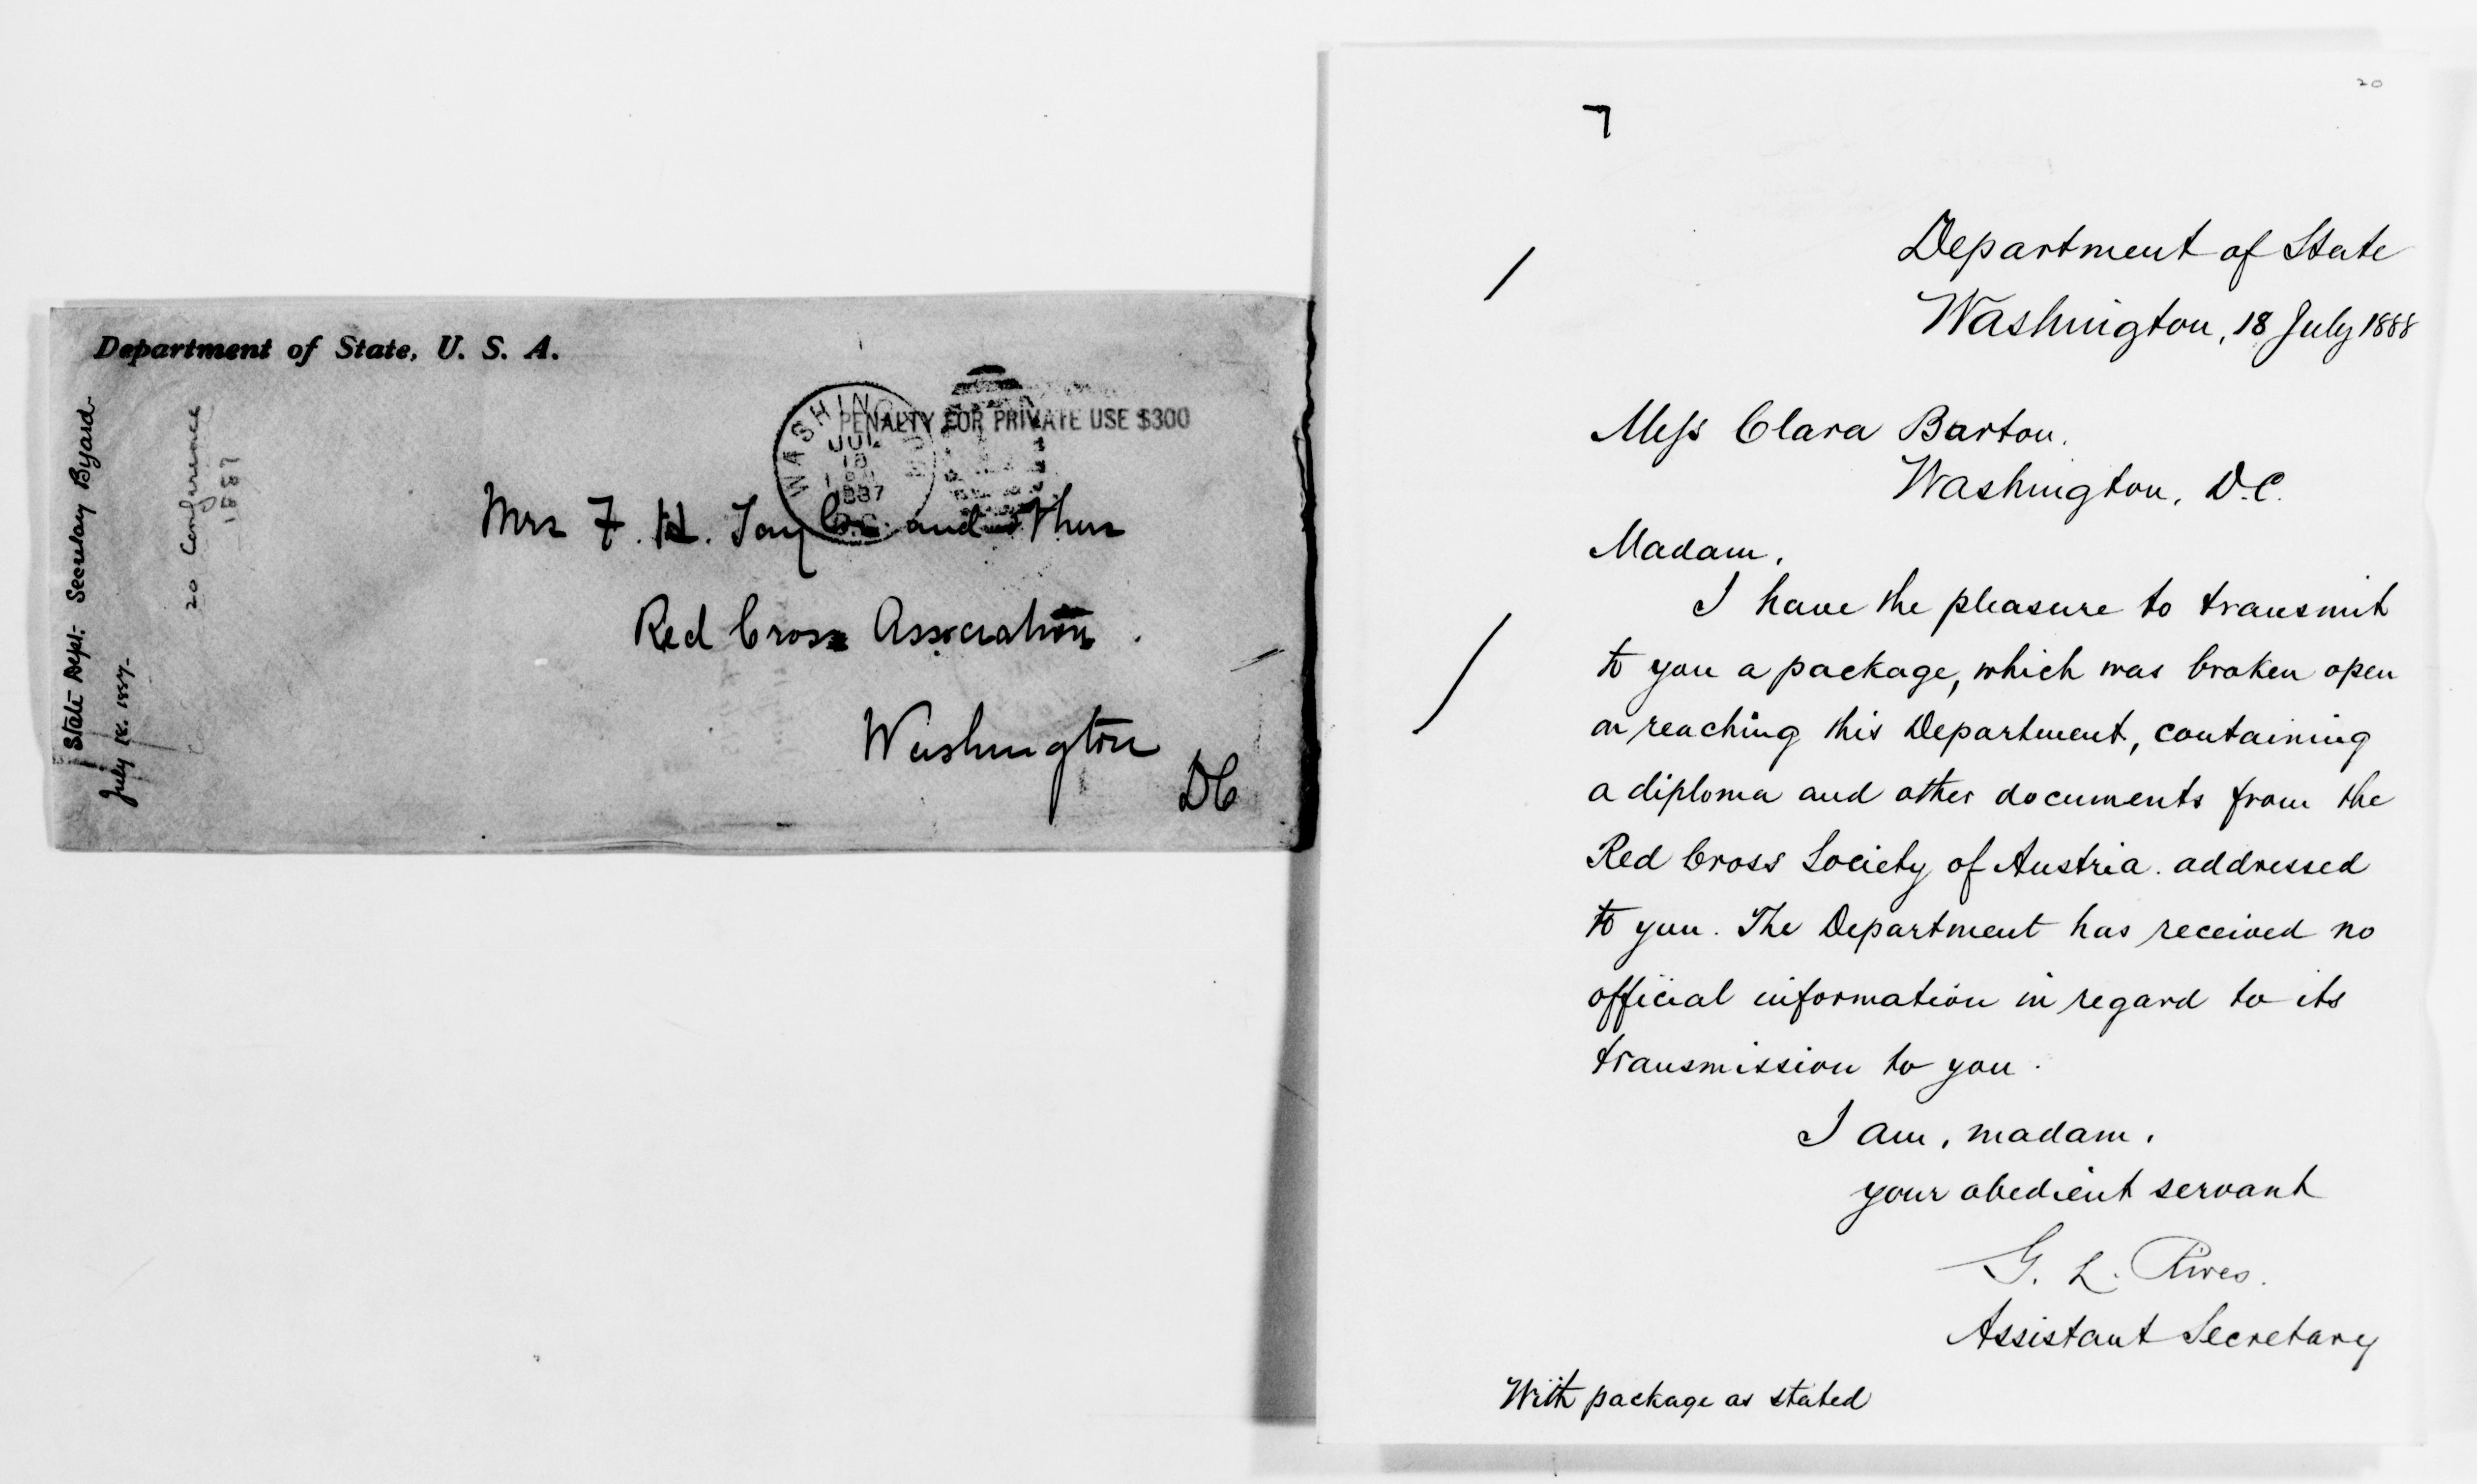 Department of State, U. S. A.
PENALTY FOR PRIVATE USE $300
WASHING
JUL
18
1887
D.C.
Mrs F. H. Taylor and others
Red Cross Association.
Washington
DC
State Dept. Secretary Byard.
July 18. 1887.
20 Conference
1887
20
7
Department of State
Washington, 18 July 1888
Miss Clara Barton.
Washington, D.C.
Madam,
I have the pleasure to transmit
to you a package, which was broken open
on reaching this Department, containing
a diploma and other documents from the
Red Cross Society of Austria. addressed
to you. The Department has received no
official information in regard to its
transmission to you.
I am, madam,
your obedient servant
G. L. Rives.
Assistant Secretary
With package as stated